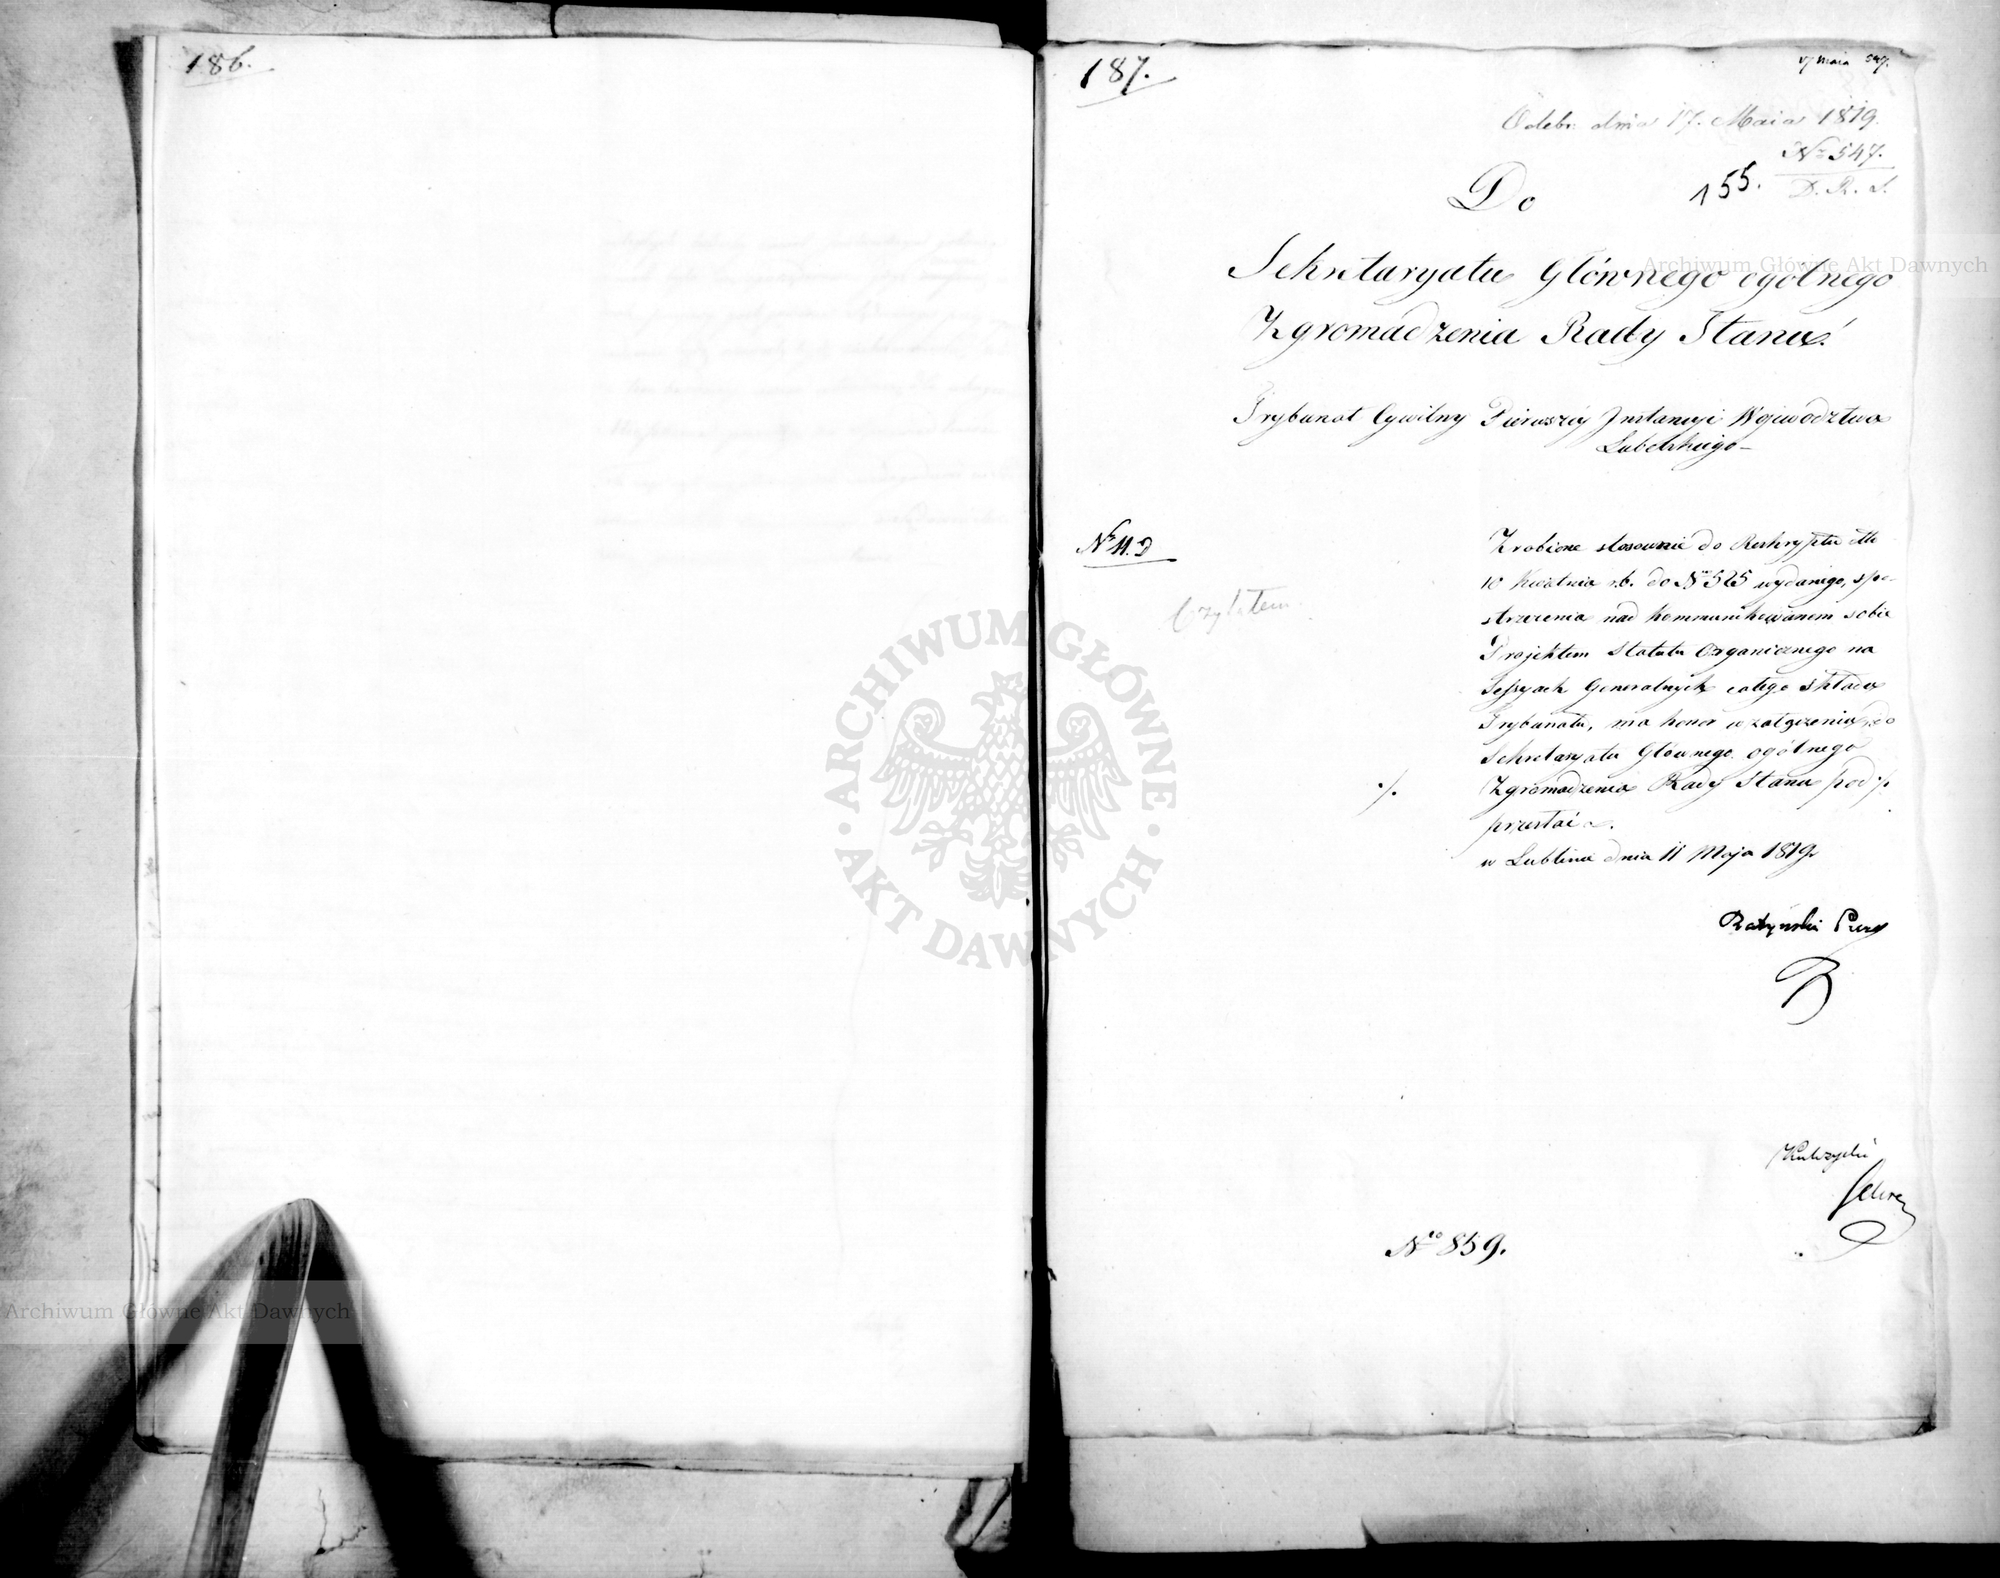 186.
187.
17 Maia 547.
Odebr. dnia 17. Maia 1819.
No 547.
D. R. S.
155.
Do
Sekretaryatu Głównego ogólnego
Zgromadzenia Rady Stanu!
Trybunał Cywilny Pierwszéy Instancyi Województwa
Lubelskiego
No 11. D
Czytałem
Zrobione stosownie do Reskryptu dto
10 Kwietnia r.b. do No 525 wydanego, spo-
strzeżenia nad kommunikowanem sobie
Projektem Statutu Organicznego na
Sessyach Generalnych całego składu
Trybunału, ma honor w załączeniu, do
Sekretaryatu Głównego ogólnego
Zgromadzenia Rady Stanu pod ·/.
·/.
przesłać
w Lublinie dnia 11 Maja 1819
Ratyński Prez
Sekre
No 859.
ARCHIWUM GŁÓWNE · AKT DAWNYCH ·
Archiwum Główne Akt Dawnych
Archiwum Główne Akt Dawnych